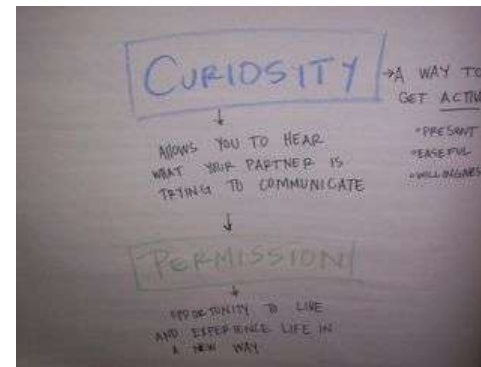 CURIOSITY
→A WAY TO
GET ACTIV
•PRESENT
•EASEFUL
•WILLINGNESS
↓
ALLOWS YOU TO HEAR
WHAT YOUR PARTNER IS
TRYING TO COMMUNICATE
↓
PERMISSION
↓
OPPORTUNITY TO LIVE
AND EXPERIENCE LIFE IN
A NEW WAY